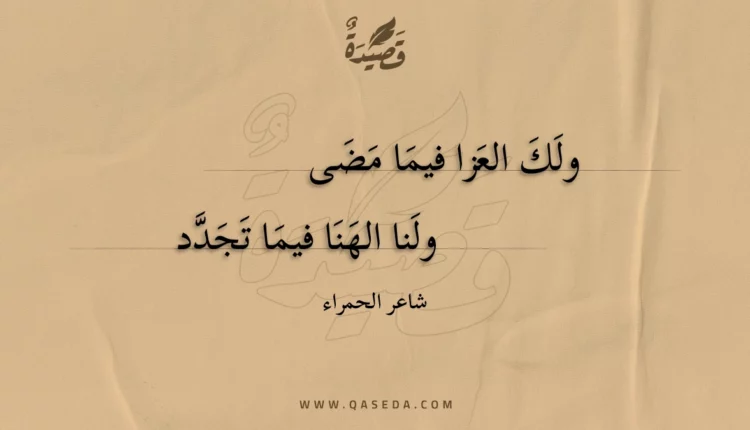 قَصِيْدَةٌ
ولَكَ العَزا فيمَا مَضَى
ولَنا الهَنَا فيمَا تَجَدَّد
شاعر الحمراء
WWW.QASEDA.COM